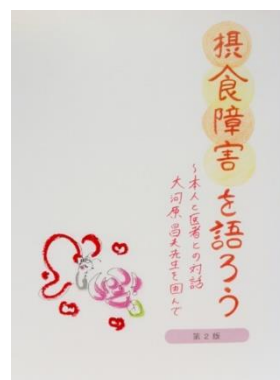 摂食障害を語ろう
～本人と医者との対話
大河原昌夫先生を囲んで
第2版